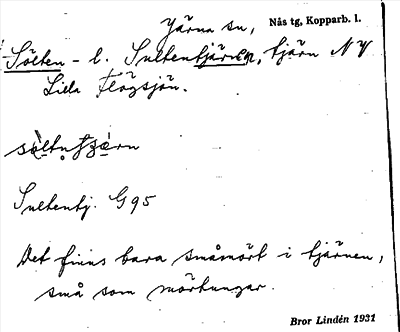 Järna sn, Nås tg, Kopparb. l.
Sölten - l. Sultentjärnen, tjärn NV
Lilla Flögsjön.
Sultentj. G95
Det finns bara småmört i tjärnen,
små som mörtungar.
Bror Lindén 1931